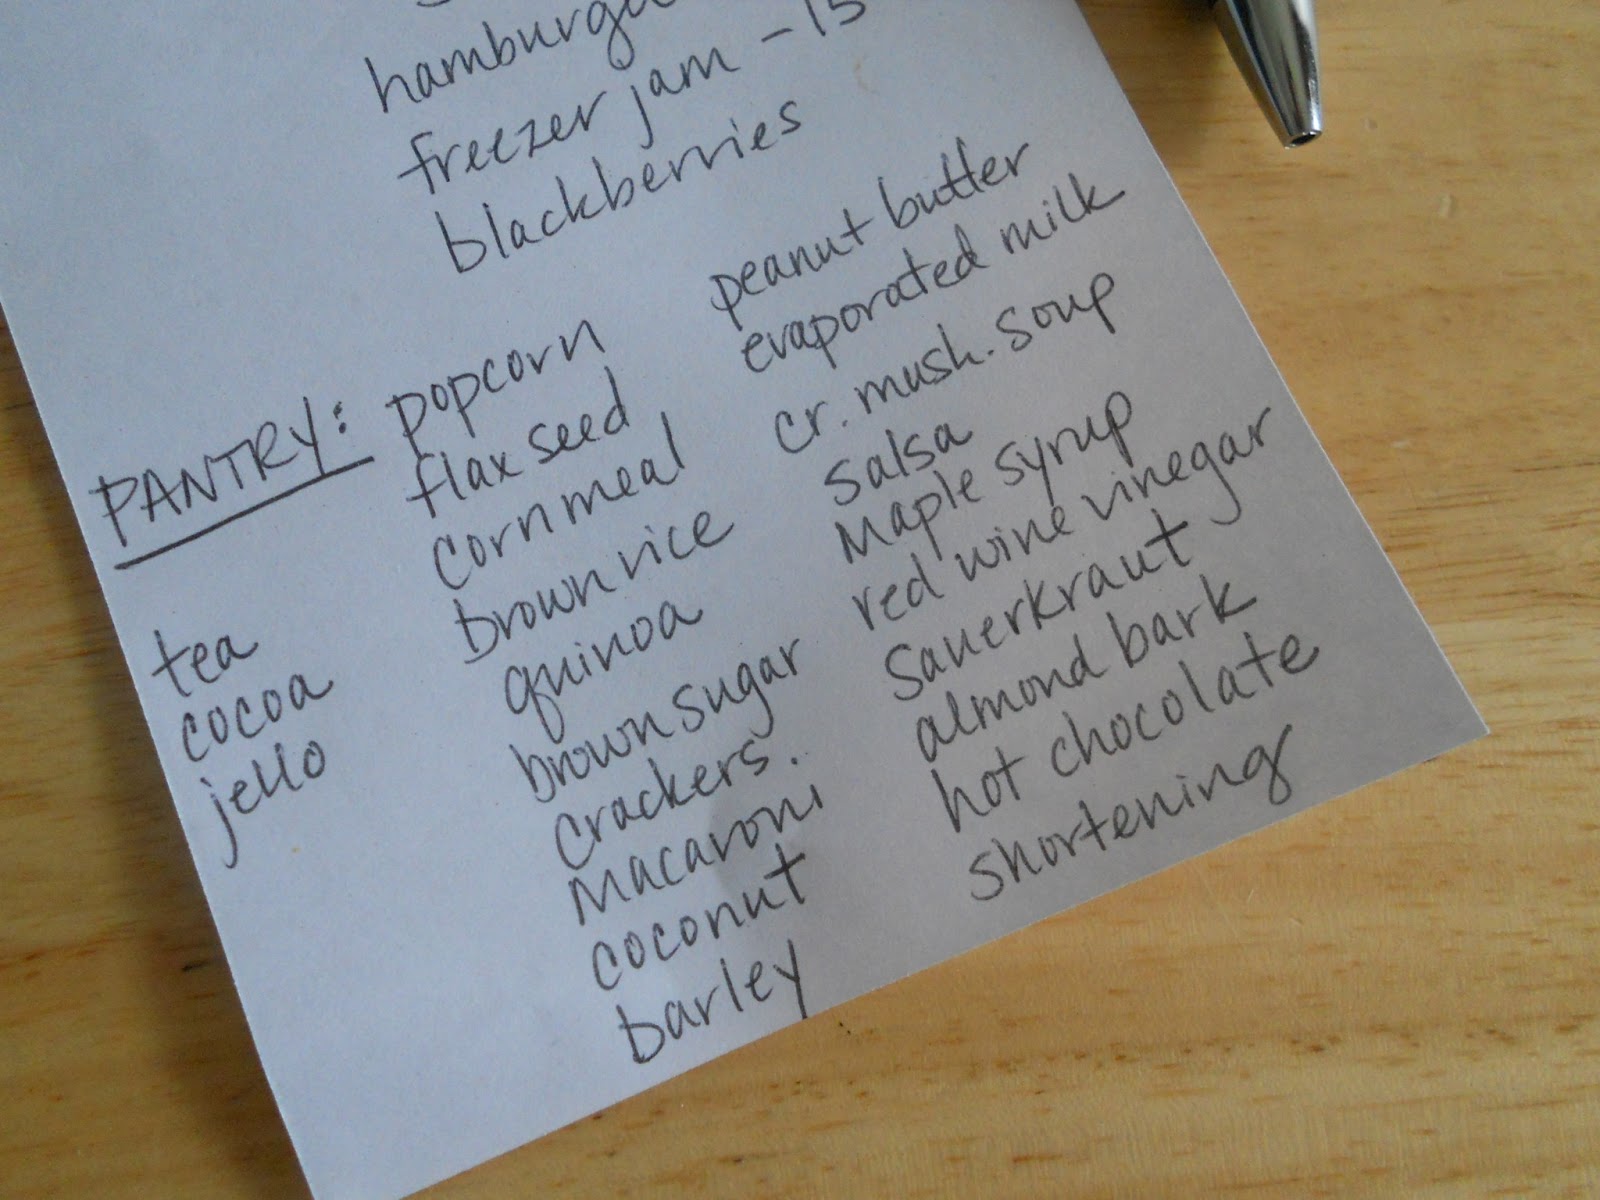 freezer jam - 15
blackberries
PANTRY:
tea
cocoa
jello
popcorn
flax seed
cornmeal
brown rice
quinoa
brown sugar
crackers.
Macaroni
coconut
barley
peanut butter
evaporated milk
cr. mush. soup
salsa
Maple syrup
red wine vinegar
sauerkraut
almond bark
hot chocolate
shortening